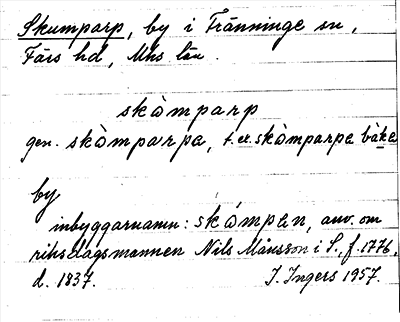 Skumparp, by i Tranninge sn,
Färs hd, Mhs län.
skòmparp
gen. skòmparpa, t.ex. skòmparpa bàke
by
inbyggarnamn: skòmpen, anv. om
riksdagsmannen Nils Månsson i S., f. 1776,
d. 1837. I. Ingers 1957.